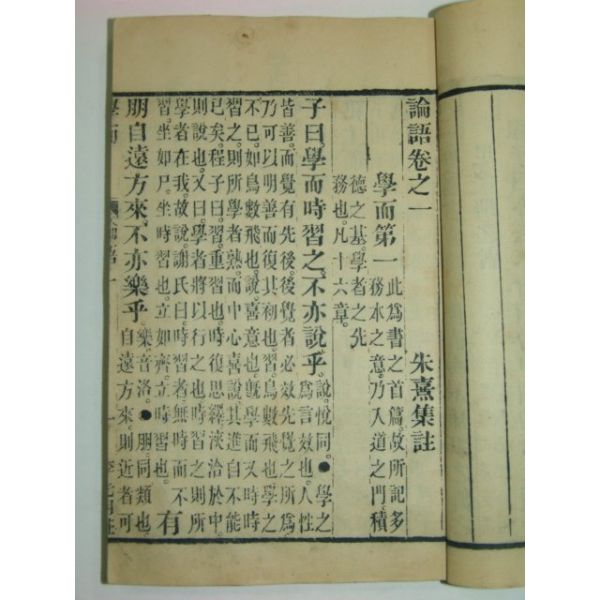 論語卷之一　朱熹集註
學而第一
此爲書之首篇。故所記多
務本之意。乃入道之門。積
德之基。學者之先
務也。凡十六章。
子曰。學而時習之。不亦說乎。
說悅同。●學之
爲言效也。人性
皆善。而覺有先後。後覺者必效先覺之所爲
乃可以明善而復其初也。習鳥數飛也。學之
不已。如鳥數飛也。說喜意也。旣學而又時時
習之。則所學者熟。而中心喜說。其進自不能
已矣。程子曰。習。重習也。時復思繹。浹洽於中
則說也。又曰。學者將以行之也。時習之則所
學者在我。故說。謝氏曰。時習者。無時而不
習。坐如尸。坐時習也。立如齊。立時習也。
有
朋自遠方來。不亦樂乎。
樂音洛。●朋。同類也。
自遠方來。則近者可
學而